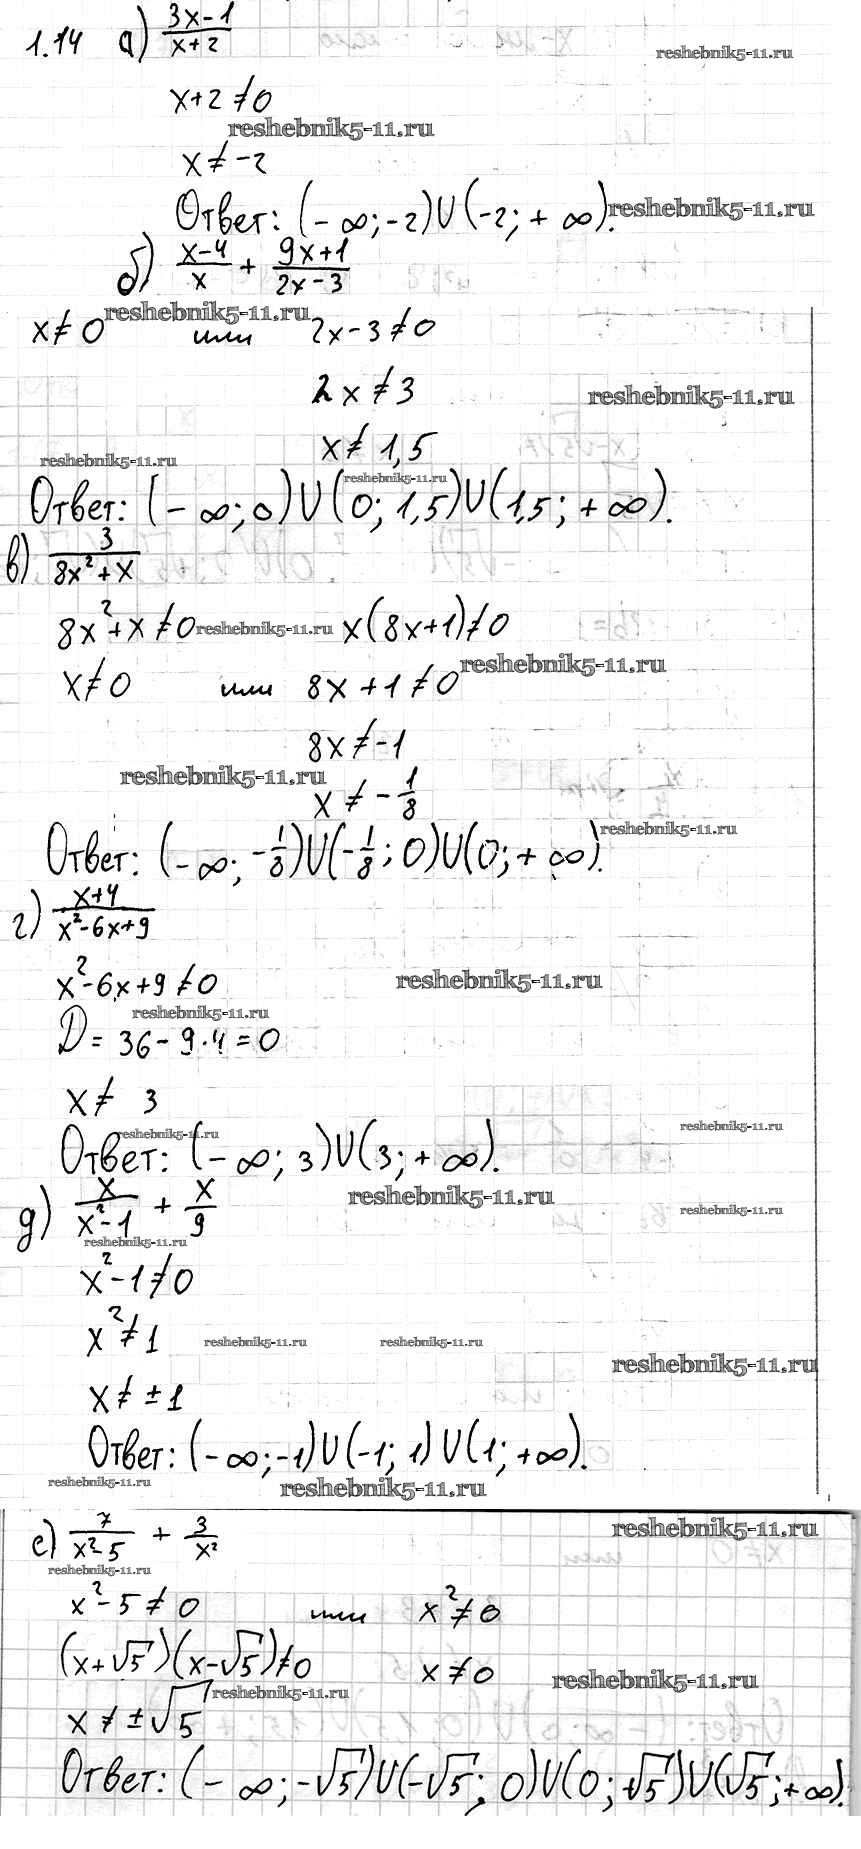 1.14 а) (3x-1)/(x+2)
reshebnik5-11.ru
x+2≠0
reshebnik5-11.ru
x≠-2
Ответ: (-∞;-2)U(-2;+∞).
reshebnik5-11.ru
б) (x-4)/x + (9x+1)/(2x-3)
reshebnik5-11.ru
x≠0 или 2x-3≠0
2x≠3
reshebnik5-11.ru
x≠1,5
reshebnik5-11.ru
reshebnik5-11.ru
Ответ: (-∞;0)U(0;1,5)U(1,5;+∞).
в) 3/(8x²+x)
8x²+x≠0 reshebnik5-11.ru x(8x+1)≠0
reshebnik5-11.ru
x≠0 или 8x+1≠0
8x≠-1
reshebnik5-11.ru
x≠-1/8
reshebnik5-11.ru
Ответ: (-∞;-1/8)U(-1/8;0)U(0;+∞).
г) (x+4)/(x²-6x+9)
x²-6x+9≠0
reshebnik5-11.ru
reshebnik5-11.ru
D=36-9·4=0
x≠ 3
reshebnik5-11.ru
reshebnik5-11.ru
Ответ: (-∞;3)U(3;+∞).
reshebnik5-11.ru
д) x/(x²-1) + x/9
reshebnik5-11.ru
reshebnik5-11.ru
x²-1≠0
x²≠1
reshebnik5-11.ru reshebnik5-11.ru
reshebnik5-11.ru
x≠±1
Ответ: (-∞;-1)U(-1;1)U(1;+∞).
reshebnik5-11.ru reshebnik5-11.ru
е) 7/(x²-5) + 3/x²
reshebnik5-11.ru
reshebnik5-11.ru
x²-5≠0 или x²≠0
(x+√5)(x-√5)≠0 x≠0
reshebnik5-11.ru
reshebnik5-11.ru
x≠±√5
Ответ: (-∞;-√5)U(-√5;0)U(0;+√5)U(√5;+∞).